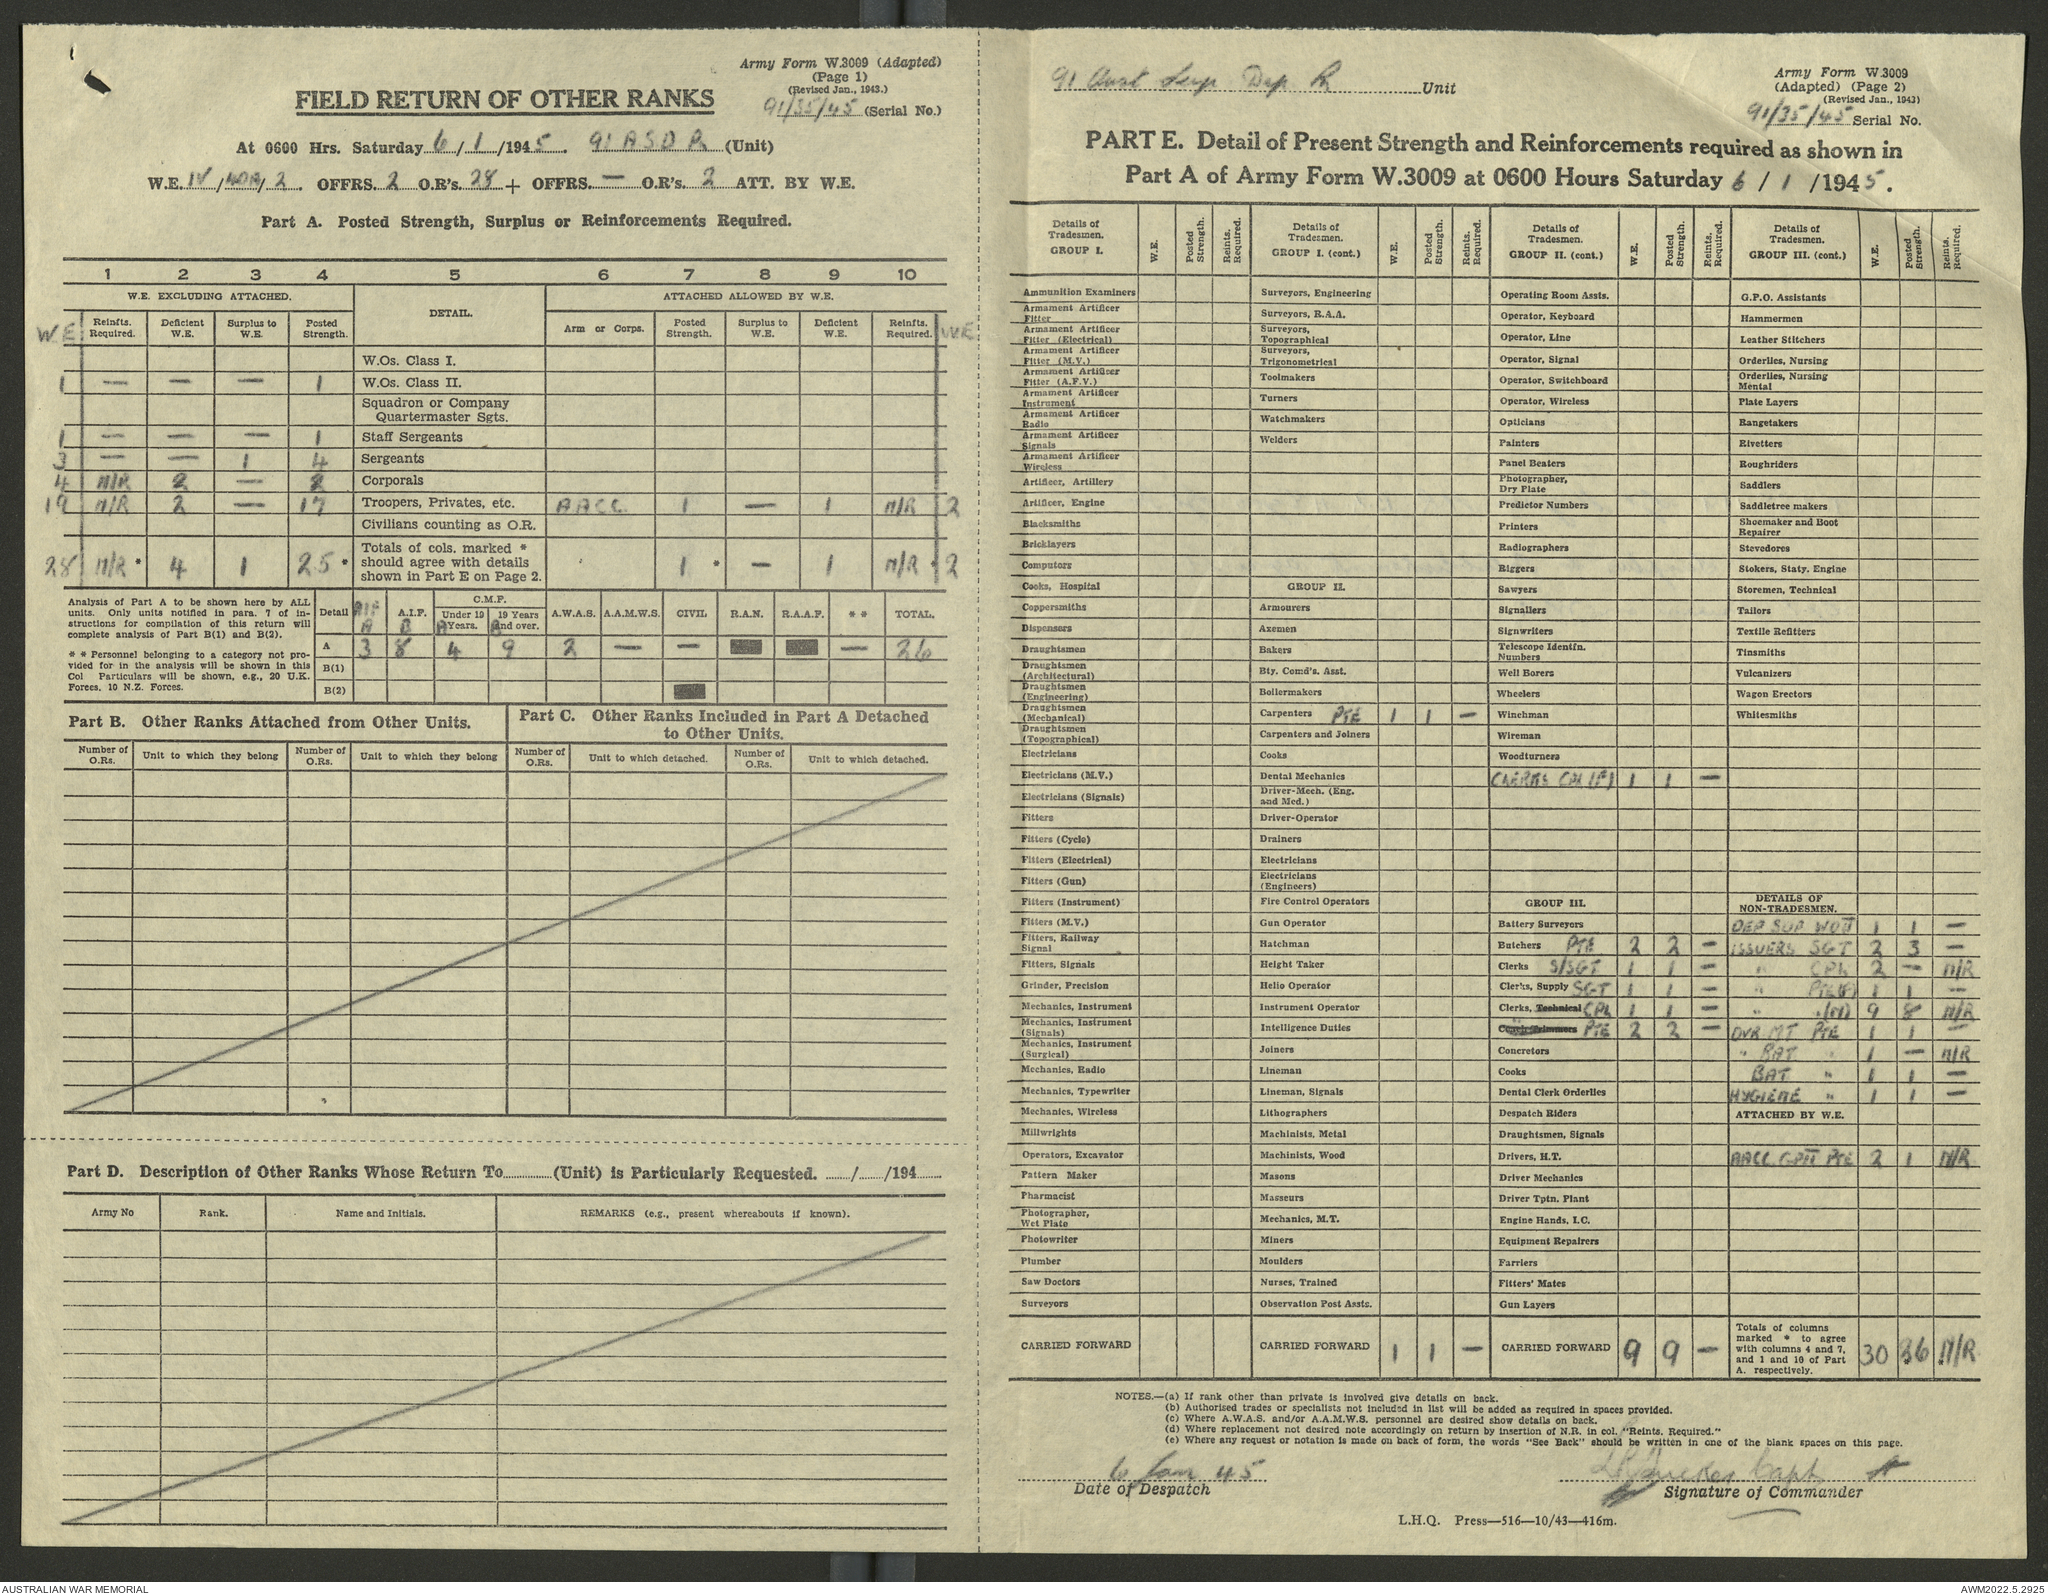 Army Form W.3009 (Adapted)
(Page 1)
(Revised Jan., 1943.)
FIELD RETURN OF OTHER RANKS
91/35/45 (Serial No.)
At 0600 Hrs. Saturday 6/1/1945. 91 A S D P (Unit)
W.E. IV/ /2. OFFRS. 2 O.R's. 28 + OFFRS. — O.R's. 2 ATT. BY W.E.
Part A. Posted Strength, Surplus or Reinforcements Required.
1 2 3 4 5 6 7 8 9 10
W.E. EXCLUDING ATTACHED. DETAIL. ATTACHED ALLOWED BY W.E.
W.E Reinfts. Required. Deficient W.E. Surplus to W.E. Posted Strength. Arm or Corps. Posted Strength. Surplus to W.E. Deficient W.E. Reinfts. Required. W.E
W.Os. Class I.
1 — — — 1 W.Os. Class II.
Squadron or Company Quartermaster Sgts.
1 — — — 1 Staff Sergeants
3 — — 1 4 Sergeants
4 N/R 2 — 2 Corporals
19 N/R 2 — 17 Troopers, Privates, etc. AACC 1 — 1 N/R 2
Civilians counting as O.R.
28 N/R * 4 1 25 * Totals of cols. marked * should agree with details shown in Part E on Page 2. 1 * — 1 N/R * 2
Analysis of Part A to be shown here by ALL units. Only units notified in para. 7 of instructions for compilation of this return will complete analysis of Part B(1) and B(2).
* * Personnel belonging to a category not provided for in the analysis will be shown in this Col Particulars will be shown, e.g., 20 U.K. Forces, 10 N.Z. Forces.
Detail AIF A A.I.F. B C.M.F. Under 19 Years. A 19 Years and over. B A.W.A.S. A.A.M.W.S. CIVIL R.A.N. R.A.A.F. * * TOTAL.
A 3 8 4 9 2 — — — 26
B(1)
B(2)
Part B. Other Ranks Attached from Other Units.
Part C. Other Ranks Included in Part A Detached to Other Units.
Number of O.Rs. Unit to which they belong Number of O.Rs. Unit to which they belong Number of O.Rs. Unit to which detached. Number of O.Rs. Unit to which detached.
Part D. Description of Other Ranks Whose Return To (Unit) is Particularly Requested. / /194
Army No Rank. Name and Initials. REMARKS (e.g., present whereabouts if known).
91 Aust Sup Dep Unit
Army Form W.3009
(Adapted) (Page 2)
(Revised Jan., 1943)
91/35/45 Serial No.
PART E. Detail of Present Strength and Reinforcements required as shown in
Part A of Army Form W.3009 at 0600 Hours Saturday 6/1/1945.
Details of Tradesmen. GROUP I. W.E. Posted Strength. Reints. Required.
Ammunition Examiners
Armament Artificer Fitter
Armament Artificer Fitter (Electrical)
Armament Artificer Fitter (M.V.)
Armament Artificer Fitter (A.F.V.)
Armament Artificer Instrument
Armament Artificer Radio
Armament Artificer Signals
Armament Artificer Wireless
Artificer, Artillery
Artificer, Engine
Blacksmiths
Bricklayers
Computors
Cooks, Hospital
Coppersmiths
Dispensers
Draughtsmen
Draughtsmen (Architectural)
Draughtsmen (Engineering)
Draughtsmen (Mechanical)
Draughtsmen (Topographical)
Electricians
Electricians (M.V.)
Electricians (Signals)
Fitters
Fitters (Cycle)
Fitters (Electrical)
Fitters (Gun)
Fitters (Instrument)
Fitters (M.V.)
Fitters, Railway Signal
Fitters, Signals
Grinder, Precision
Mechanics, Instrument
Mechanics, Instrument (Signals)
Mechanics, Instrument (Surgical)
Mechanics, Radio
Mechanics, Typewriter
Mechanics, Wireless
Millwrights
Operators, Excavator
Pattern Maker
Pharmacist
Photographer, Wet Plate
Photowriter
Plumber
Saw Doctors
Surveyors
CARRIED FORWARD
Details of Tradesmen. GROUP I. (cont.) W.E. Posted Strength. Reints. Required.
Surveyors, Engineering
Surveyors, R.A.A.
Surveyors, Topographical
Surveyors, Trigonometrical
Toolmakers
Turners
Watchmakers
Welders
GROUP II.
Armourers
Axemen
Bakers
Bty. Comd's. Asst.
Boilermakers
Carpenters PTE 1 1 —
Carpenters and Joiners
Cooks
Dental Mechanics
Driver-Mech. (Eng. and Med.)
Driver-Operator
Drainers
Electricians
Electricians (Engineers)
Fire Control Operators
Gun Operator
Hatchman
Height Taker
Helio Operator
Instrument Operator
Intelligence Duties
Joiners
Lineman
Lineman, Signals
Lithographers
Machinists, Metal
Machinists, Wood
Masons
Masseurs
Mechanics, M.T.
Miners
Moulders
Nurses, Trained
Observation Post Assts.
CARRIED FORWARD 1 1 —
Details of Tradesmen. GROUP II. (cont.) W.E. Posted Strength. Reints. Required.
Operating Room Assts.
Operator, Keyboard
Operator, Line
Operator, Signal
Operator, Switchboard
Operator, Wireless
Opticians
Painters
Panel Beaters
Photographer, Dry Plate
Predictor Numbers
Printers
Radiographers
Riggers
Sawyers
Signallers
Signwriters
Telescope Identfn. Numbers
Well Borers
Wheelers
Winchman
Wireman
Woodturners
CLERKS CPL (F) 1 1 —
GROUP III.
Battery Surveyors
Butchers PTE 2 2 —
Clerks S/SGT 1 1 —
Clerks, Supply SGT 1 1 —
Clerks, Technical CPL 1 1 —
Coach Trimmers " PTE 2 2 —
Concretors
Cooks
Dental Clerk Orderlies
Despatch Riders
Draughtsmen, Signals
Drivers, H.T.
Driver Mechanics
Driver Tptn, Plant
Engine Hands, I.C.
Equipment Repairers
Farriers
Fitters' Mates
Gun Layers
CARRIED FORWARD 9 9 —
Details of Tradesmen. GROUP III. (cont.) W.E. Posted Strength. Reints. Required.
G.P.O. Assistants
Hammermen
Leather Stitchers
Orderlies, Nursing
Orderlies, Nursing Mental
Plate Layers
Rangetakers
Rivetters
Roughriders
Saddlers
Saddletree makers
Shoemaker and Boot Repairer
Stevedores
Stokers, Staty. Engine
Storemen, Technical
Tailors
Textile Refitters
Tinsmiths
Vulcanizers
Wagon Erectors
Whitesmiths
DETAILS OF NON-TRADESMEN.
DEP SUP WOII 1 1 —
ISSUERS SGT 2 3 —
" CPL 2 — N/R
" PTE(F) 1 1 —
" " (M) 9 8 N/R
DVR MT PTE 1 1 —
" BAT " 1 — N/R
BAT " 1 1 —
HYGIENE " 1 1 —
ATTACHED BY W.E.
AACC GPII PTE 2 1 N/R
Totals of columns marked * to agree with columns 4 and 7, and 1 and 10 of Part A. respectively. 30 26 * * N/R
NOTES.—(a) If rank other than private is involved give details on back.
(b) Authorised trades or specialists not included in list will be added as required in spaces provided.
(c) Where A.W.A.S. and/or A.A.M.W.S. personnel are desired show details on back.
(d) Where replacement not desired note accordingly on return by insertion of N.R. in col. "Reints. Required."
(e) Where any request or notation is made on back of form, the words "See Back" should be written in one of the blank spaces on this page.
6 Jan 45
Date of Despatch
Capt
Signature of Commander
L.H.Q. Press—516—10/43—416m.
AUSTRALIAN WAR MEMORIAL
AWM2022.5.2925